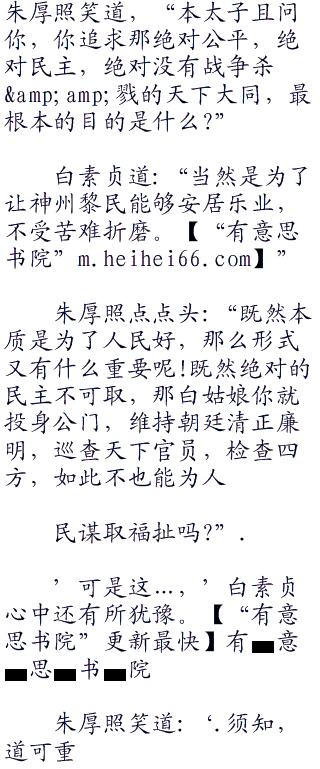 朱厚照笑道，“本太子且问
你，你追求那绝对公平，绝
对民主，绝对没有战争杀
&amp;amp;戮的天下大同，最
根本的目的是什么?”
白素贞道:“当然是为了
让神州黎民能够安居乐业，
不受苦难折磨。【“有意思
书院”m.heihei66.com】”
朱厚照点点头:“既然本
质是为了人民好，那么形式
又有什么重要呢!既然绝对的
民主不可取，那白姑娘你就
投身公门，维持朝廷清正廉
明，巡查天下官员，检查四
方，如此不也能为人
民谋取福扯吗?”.
’可是这…，’白素贞
心中还有所犹豫。【“有意
思书院”更新最快】有▃意
▃思▃书▃院
朱厚照笑道:‘.须知，
道可重